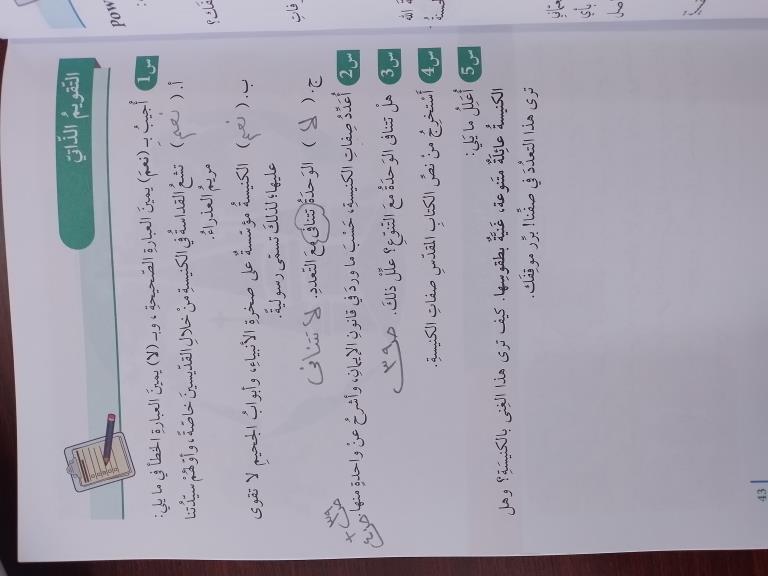 التقويم الذاتي
س1 أُجيبُ بـ (نعم) يمينَ العبارةِ الصّحيحةِ، وبـ (لا) يمينَ العبارةِ الخطأ في ما يلي:
أ. ( نعم ) تشعُّ القداسةُ في الكنيسةِ منْ خلالِ القدّيسينَ خاصّةً، وأوّلهُمْ سيّدتُنا
مريمُ العذراءُ.
ب. ( نعم ) الكنيسةُ مؤسّسةٌ على صخرةِ الأنبياءِ، وأبوابُ الجحيمِ لا تقوى
عليها؛ لذلكَ تسمّى رسوليةً.
ج. ( لا ) الوَحدَةُ تتنافى معَ التّعددِ. لا تتنافى
س2 أُعدِّدُ صِفاتِ الكنيسةِ، حَسْبَ ما وردَ في قانونِ الإيمانِ، وأشرحُ عنْ واحدةٍ منها.
س3 هلْ تتنافى الوَحدةُ معَ التنوّعِ؟ علّلْ ذلكَ. ص٣٩
س4 أستخرِجُ منْ نصِّ الكتابِ المقدّسِ صفاتِ الكنيسةِ.
س5 أُعَلِّلُ ما يَلي:
الكنيسةُ عائلةٌ متنوعة، غنيّةٌ بطقوسِها. كيف ترى هذا الغنى بالكنيسَةِ؟ وهل
ترى هذا التعدّدَ في صفِّنا؟ برِّر موقِفَك.
43
pow